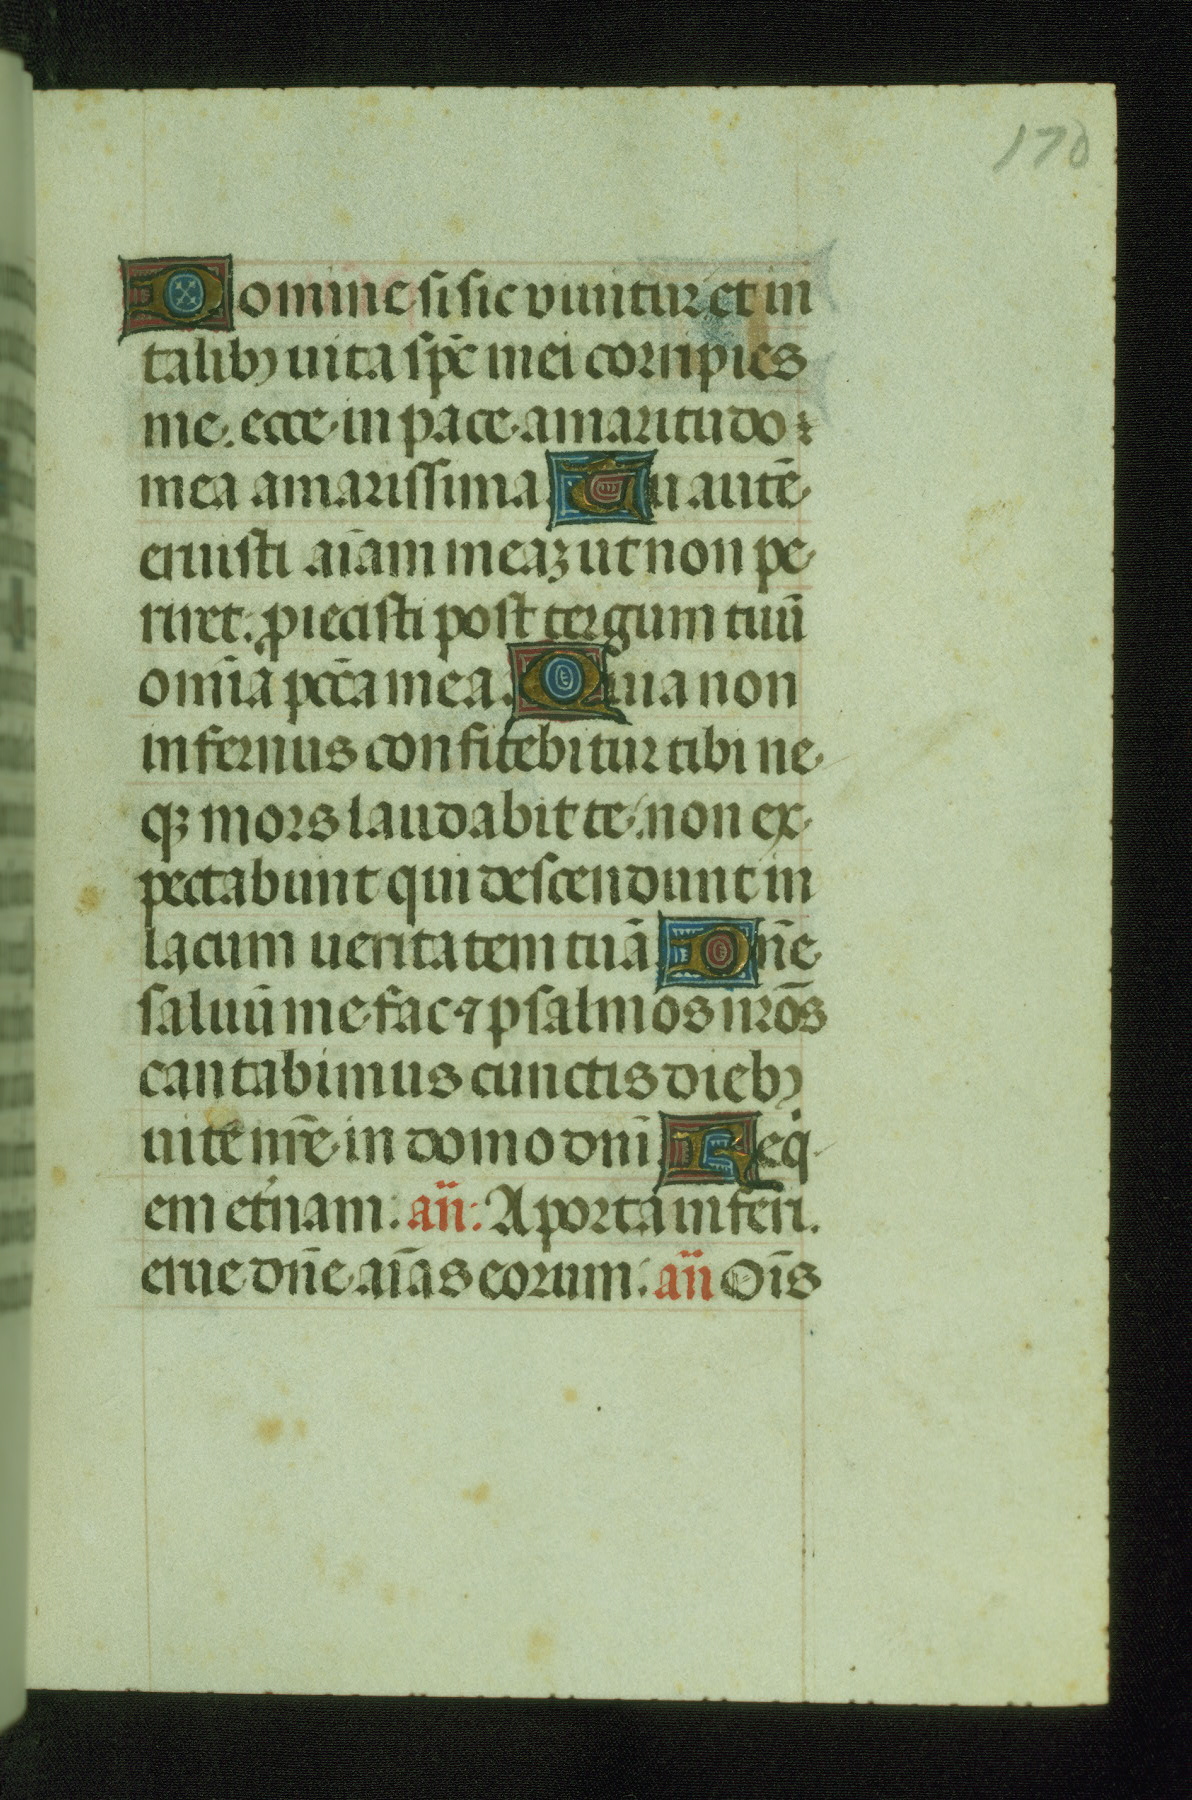 170
Domine si sic viuitur et in
talibꝫ uita sp̄c mei corripies
me. ecce in pace amaritudo
mea amarissima. Tu autē
eruisti aīam meaꝫ ut non pe
riret. ꝓiecisti post tergum tuū
omīa pctā mea. Quia non
infernus confitebitur tibi ne
qꝫ mors laudabit te. non ex
pectabunt qui descendunt in
lacum ueritatem tuā. Dn̄e
saluū me fac ⁊ psalmos nr̄os
cantabimus cunctis diebꝫ
uite nr̄e in domo dnī. Req
em et̄nam. an̄: A porta inferi.
erue dn̄e aīas eorum. an̄ Oīs